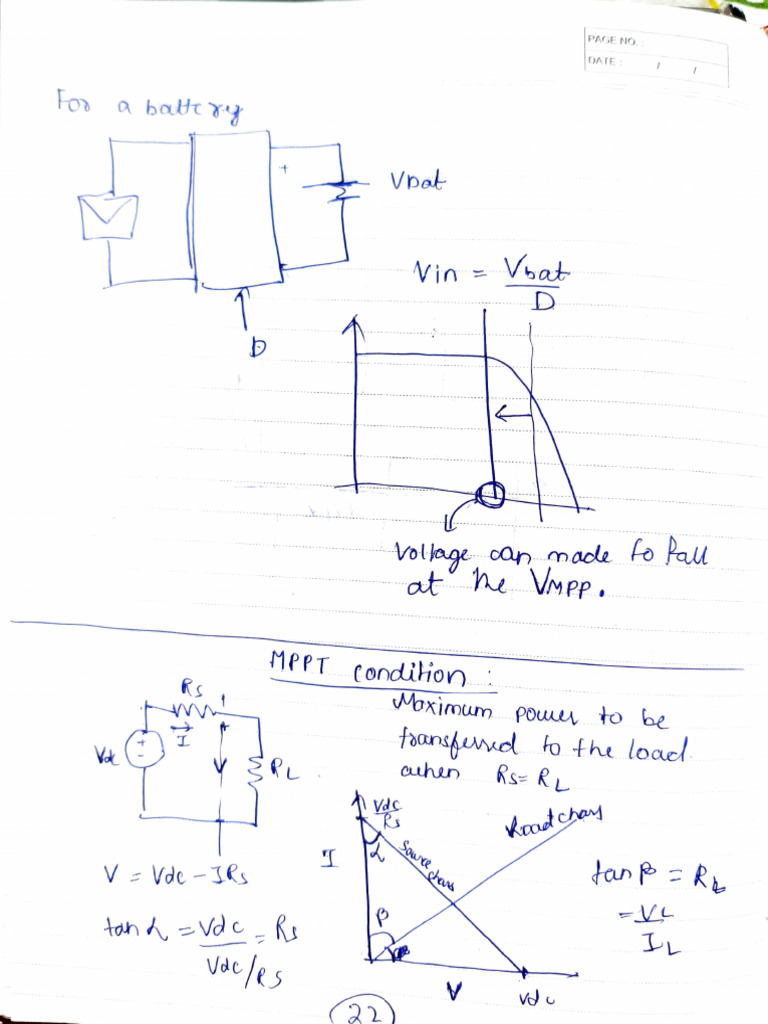 PAGE NO. :
DATE : / /
For a battery
+
Vbat
D
Vin = Vbat/D
Voltage can made to fall
at the VMPP.
MPPT condition :
Maximum power to be
transferred to the load
when Rs = RL
Rs
I
+
Vdc
+
-
V
RL
V = Vdc - IRs
tan α = Vdc / Vdc/Rs = Rs
Vdc/Rs
I
α
Source chars
Load chars
β
V
Vdc
tan β = RL
= VL/IL
22